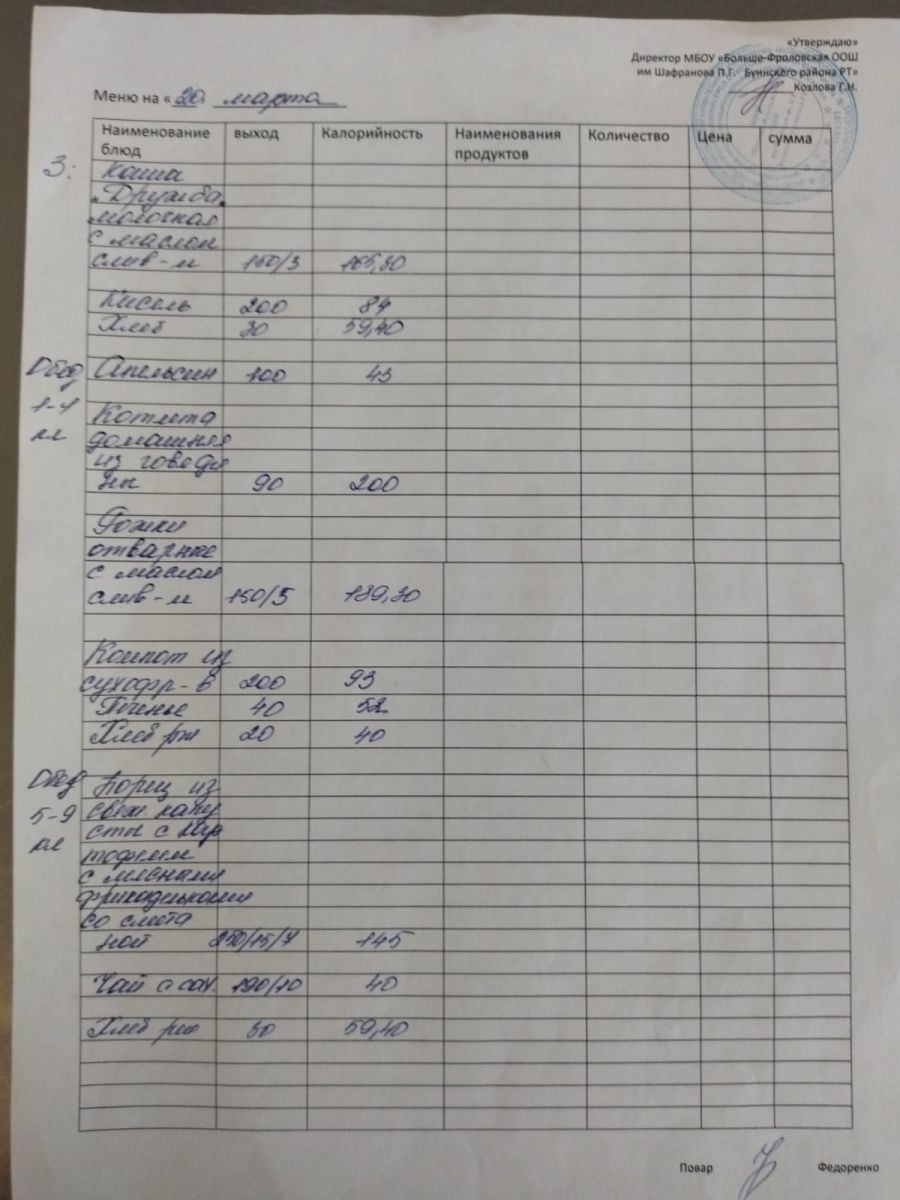 «Утверждаю»
Директор МБОУ «Больше-Фроловская ООШ
им Шафранова П.Г. Буинского района РТ»
Козлова Г.Н.
Меню на «20 марта
Наименование блюд выход Калорийность Наименования продуктов Количество Цена сумма
З: Каша
"Дружба"
молочная
с маслом
слив-м 150/5 165,30
Кисель 200 84
Хлеб 30 59,40
Обед Апельсин 100 43
1-4 Котлета
кл домашняя
из говяди
ны 90 200
Рожки
отварные
с маслом
слив-м 150/5 189,30
Компот из
сухофр-в 200 93
Печенье 40 52
Хлеб рж 20 40
Обед Борщ из
5-9 свеж. капу
кл сты с кар
тофелем
с мясными
фрикадельками
со смета
ной 250/15/7 145
Чай с сах. 190/10 40
Хлеб рж 30 59,40
Повар Федоренко